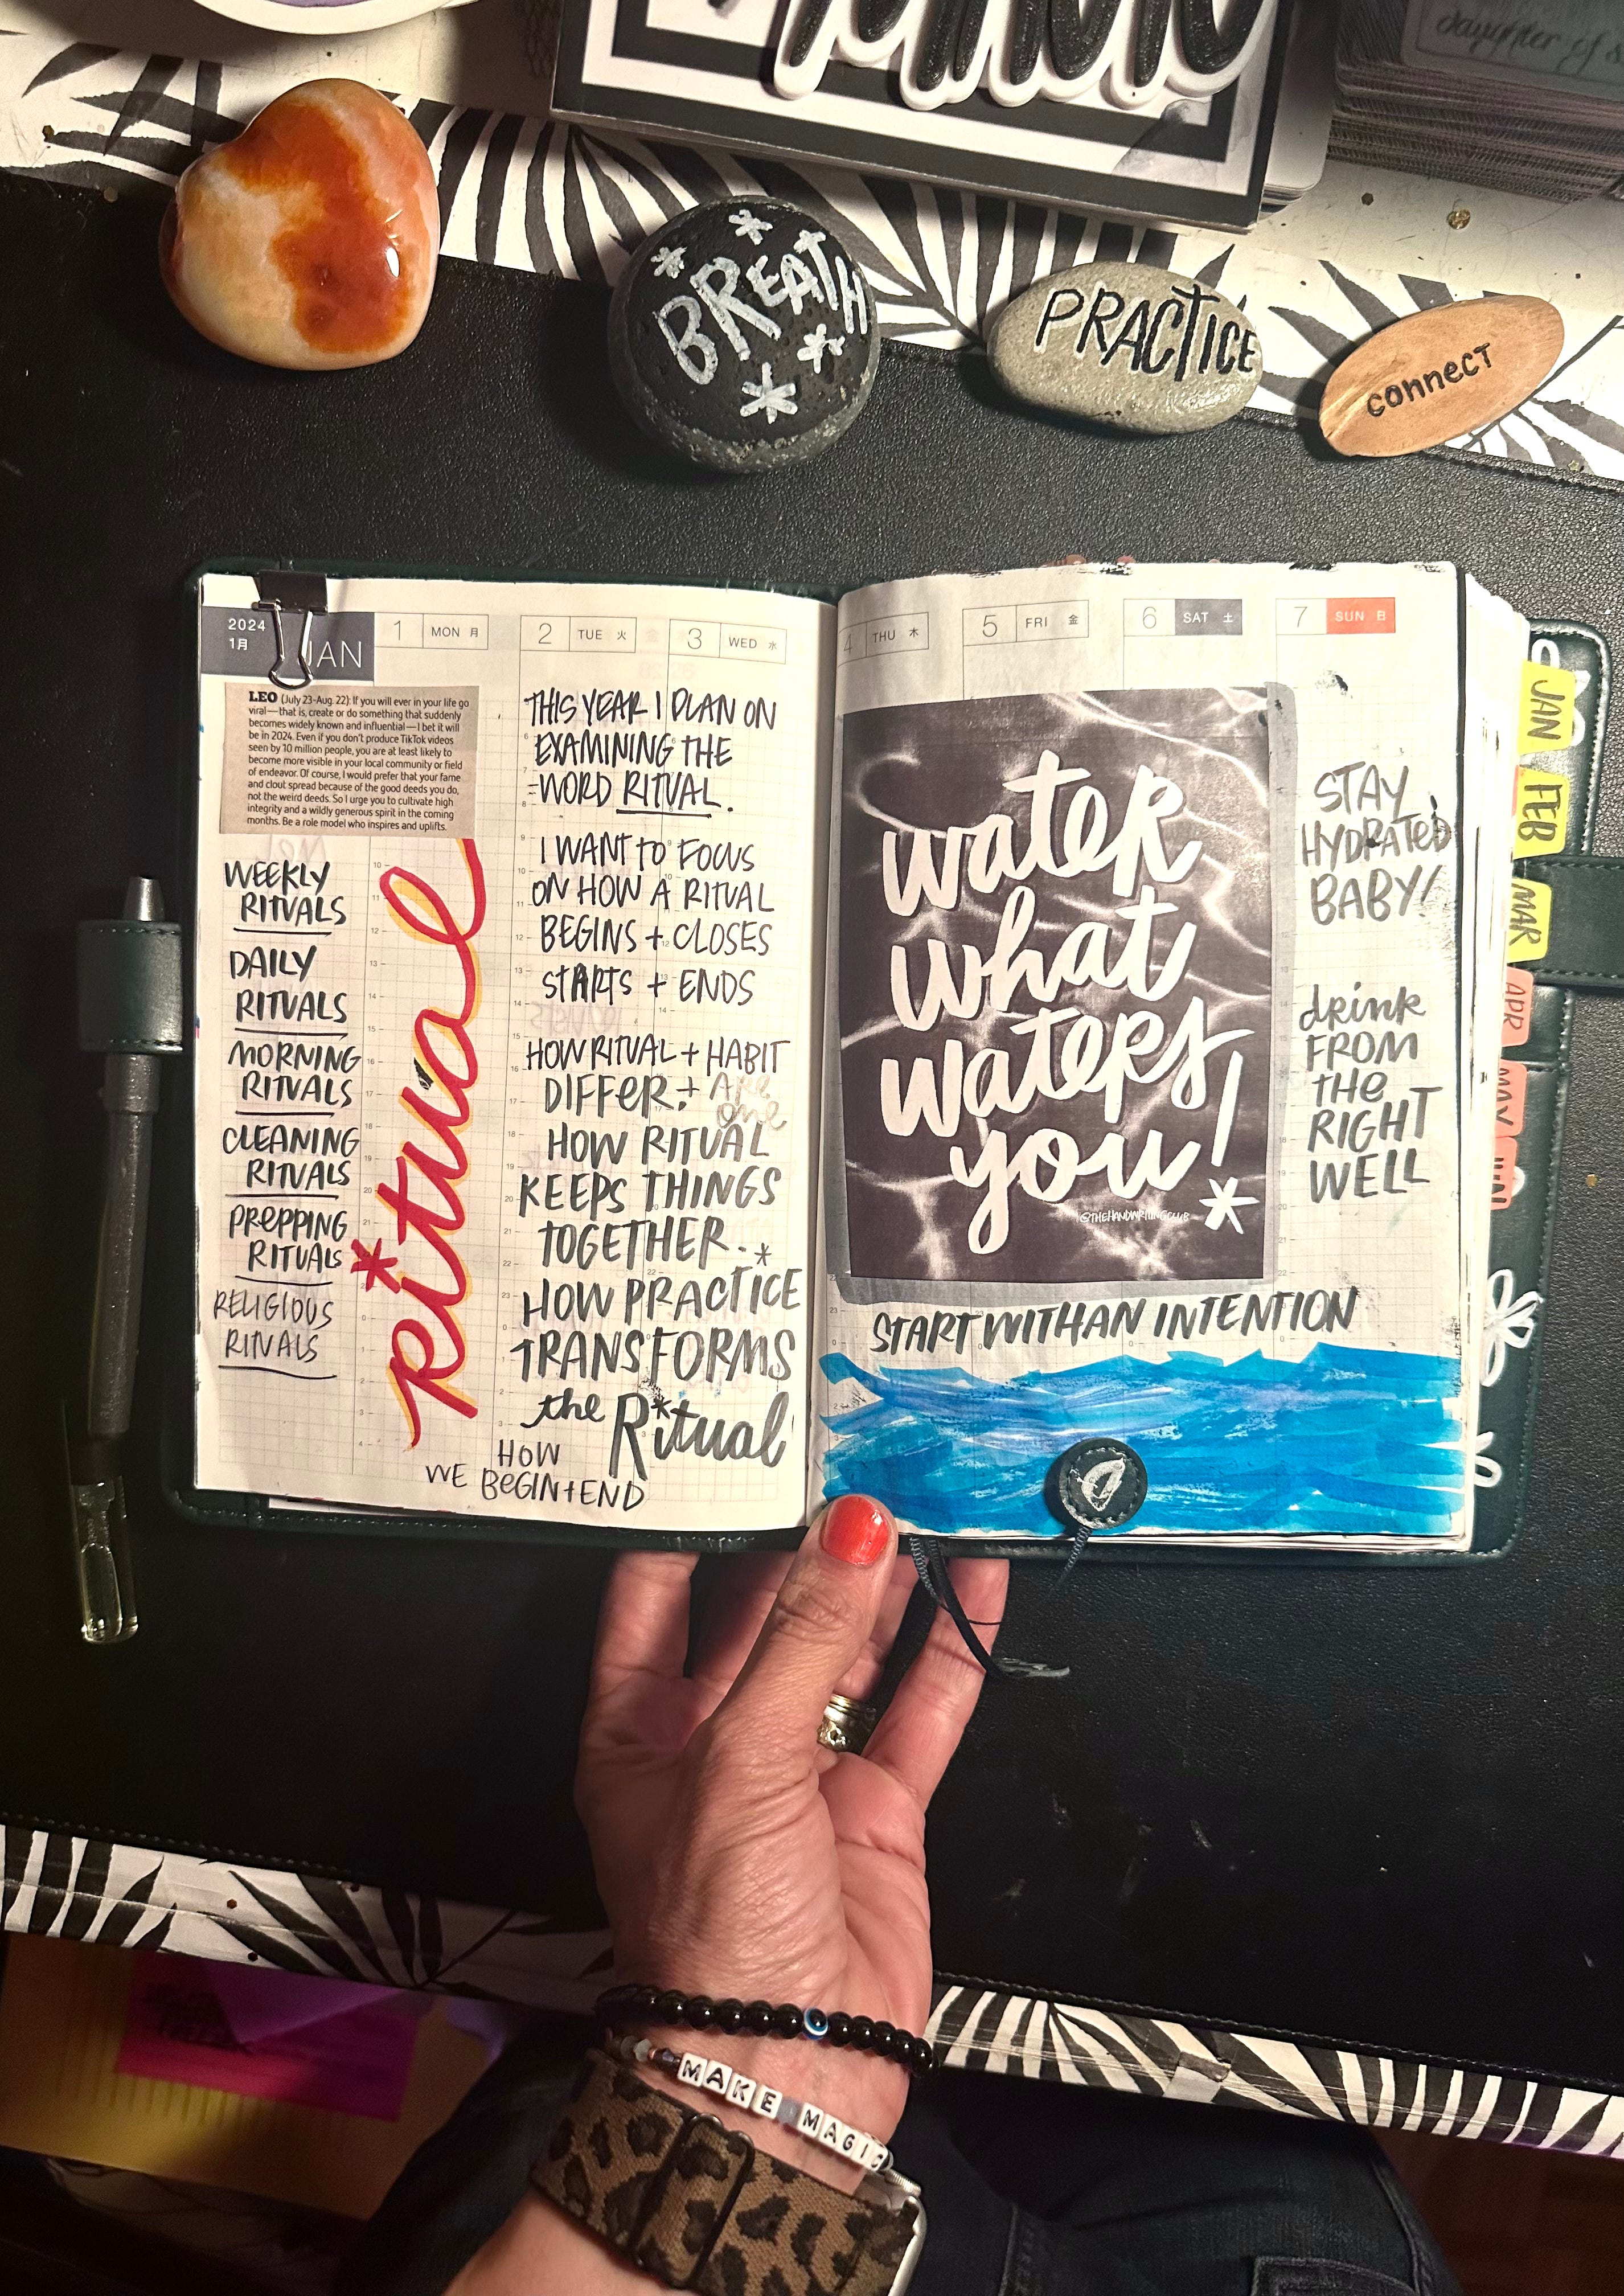 daughter of
BREATH
PRACTICE
connect
2024
1月
JAN
1 MON 月
2 TUE 火
3 WED 水
4 THU 木
5 FRI 金
6 SAT 土
7 SUN 日
LEO (July 23-Aug. 22): If you will ever in your life go
viral—that is, create or do something that suddenly
becomes widely known and influential—I bet it will
be in 2024. Even if you don't produce TikTok videos
seen by 10 million people, you are at least likely to
become more visible in your local community or field
of endeavor. Of course, I would prefer that your fame
and clout spread because of the good deeds you do,
not the weird deeds. So I urge you to cultivate high
integrity and a wildly generous spirit in the coming
months. Be a role model who inspires and uplifts.
WEEKLY
RITUALS
DAILY
RITUALS
MORNING
RITUALS
CLEANING
RITUALS
PREPPING
RITUALS
RELIGIOUS
RITUALS
Ritual
THIS YEAR I PLAN ON
EXAMINING THE
WORD RITUAL.
I WANT TO FOCUS
ON HOW A RITUAL
BEGINS + CLOSES
STARTS + ENDS
HOW RITUAL + HABIT
DIFFER + ARE
one
HOW RITUAL
KEEPS THINGS
TOGETHER.*
HOW PRACTICE
TRANSFORMS
the Ritual
HOW
WE BEGIN + END
water
what
waters
you!*
@THEHANDWRITINGCLUB
START WITH AN INTENTION
STAY
HYDRATED
BABY!
drink
FROM
the
RIGHT
WELL
JAN
FEB
MAR
APR
MAY
JUN
MAKE MAGIC